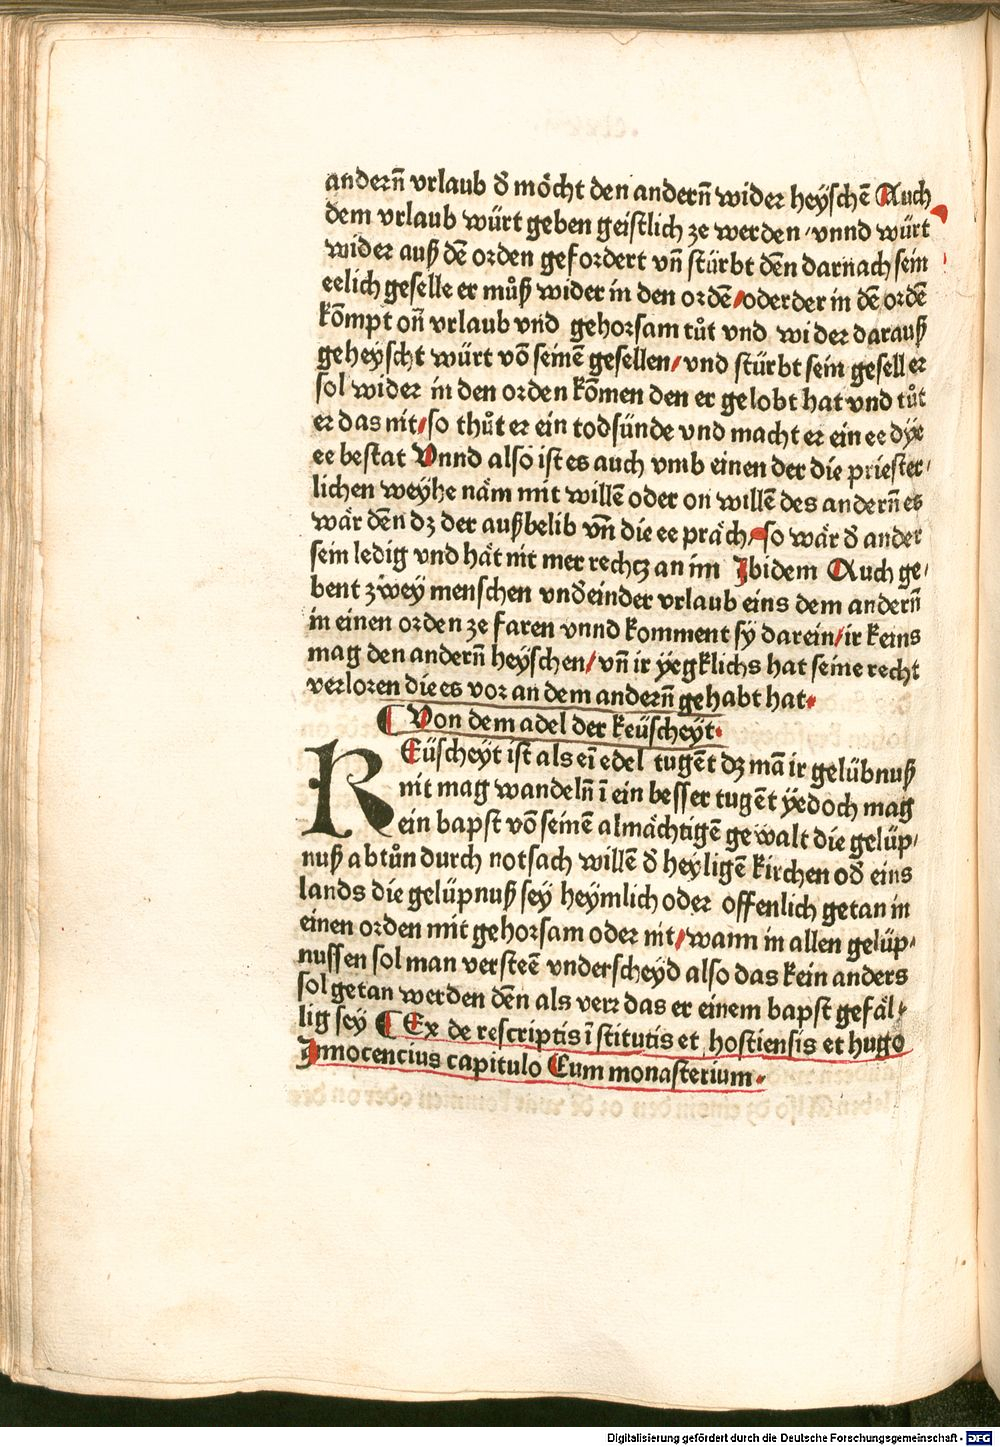 andern̄ vrlaub d̕ mo̎cht den andern̄ wider heÿschē Auch
dem vrlaub würt geben geistlich ze werden / vnnd würt
wider auß dē orden gefordert vn̄ stürbt dēn darnach sein
eelich geselle er můß wider in den ordē / oder der in dē ordē
kōmpt on̄ vrlaub vnd gehorsam tůt vnd wider darauß
geheÿscht würt vō seinē gesellen / vnd stürbt sein gesell er
sol wider in den orden kōmen den er gelobt hat vnd tůt
er das nit / so thůt er ein todsünde vnd macht er ein ee dÿe
ee bestat Vnnd also ist es auch vmb einen der die priester⸗
lichen weÿhe näm mit willē oder on willē des andern̄ es
wär dēn dz der außbelib vn̄ die ee präch / so wär d̕ ander
sein ledig vnd hät nit mer rechtz an im Ibidem Auch ge⸗
bent zweÿ menschen vnd̕einder vrlaub eins dem andern̄
in einen orden ze faren vnnd komment sÿ darein / ir keins
mag den andern̄ heÿschen / vn̄ ir ÿegklichs hat seine recht
verloren die es vor an dem andern̄ gehabt hat.
¶ Von dem adel der keüscheyt.
KEüscheyt ist als eī edel tugēt dz mā ir gelübnuß
nit mag wandeln̄ ī ein besser tugēt ÿedoch mag
ein bapst vō seinē almächtigē gewalt die gelüp⸗
nuß abtůn durch notsach willē d̕ heyligē kirchen od̕ eins
lands die gelüpnuß seÿ heÿmlich oder offenlich getan in
einen orden mit gehorsam oder nit / wann in allen gelüp⸗
nussen sol man versteē vnderscheÿd also das kein anders
sol getan werden dēn als verr das er einem bapst gefäl⸗
lig seÿ ¶ Ex de rescriptis īstitutis et hostiensis et hugo
Innocencius capitulo Cum monasterium.
Digitalisierung gefördert durch die Deutsche Forschungsgemeinschaft - DFG